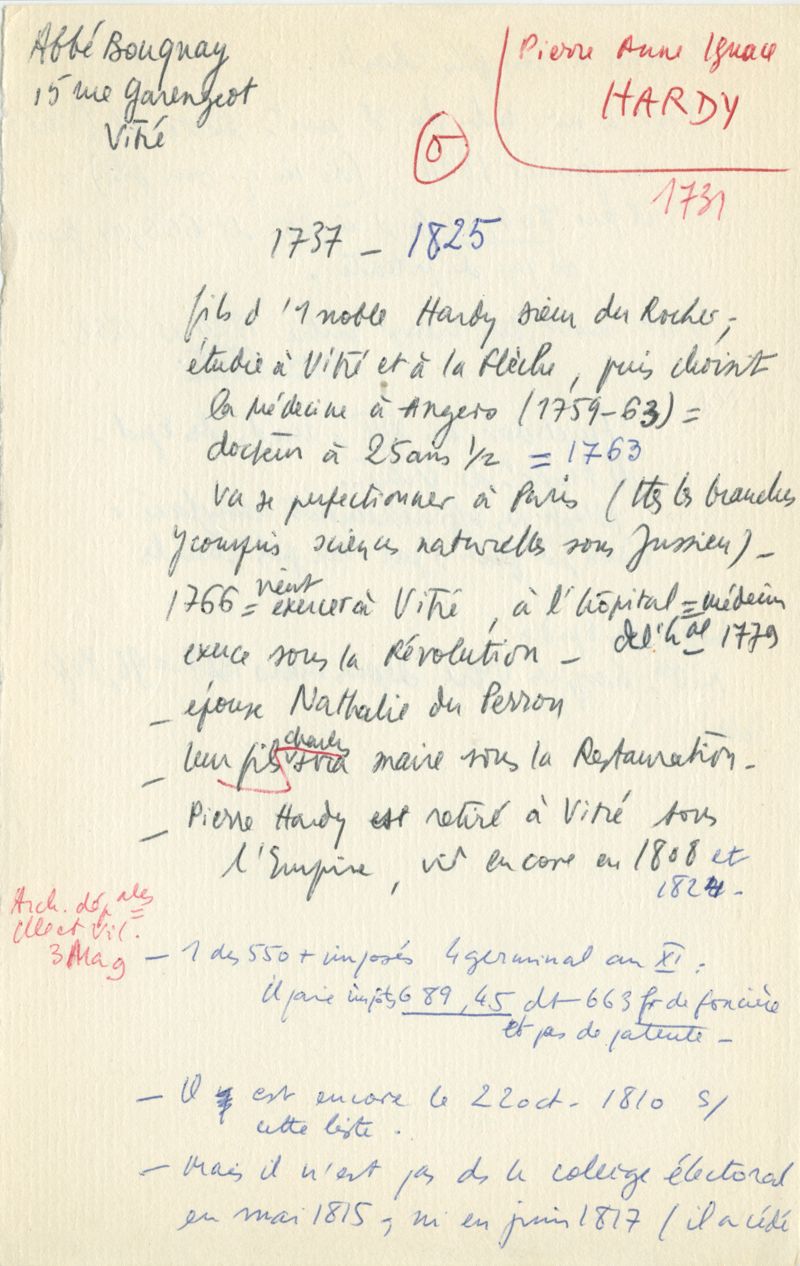 Abbé Bouqnay
15 rue Garengeot
Vitré
Pierre Anne Ignace
HARDY
1731
1737 - 1825
fils d'1 noble Hardy sieur du Rocher,
étudie à Vitré et à la Flèche, puis choisit
la Médecine à Angers (1759-63) =
docteur à 25 ans 1/2 = 1763
Va se perfectionner à Paris (ttes les branches
y compris sciences naturelles sous Jussieu) -
1766 = vient exercer à Vitré, à l'hôpital = médecin
de l'hal 1779
exerce sous la Révolution -
- épouse Nathalie du Perron
- leur fils Charles sera maire sous la Restauration -
- Pierre Hardy est retiré à Vitré sous
l'Empire, vit encore en 1808 et
1824 -
Arch. dép ales =
Elect Vit.
3 M 29
- 1 des 550 + imposés 4 germinal an XI :
il paie impôts 689,45 dt 663 fr de foncière
et pas de patente -
- Il est encore le 22 oct - 1810 s/
cette liste .
- Mais il n'est pas ds le collège électoral
en mai 1815 , ni en juin 1817 (il a cédé